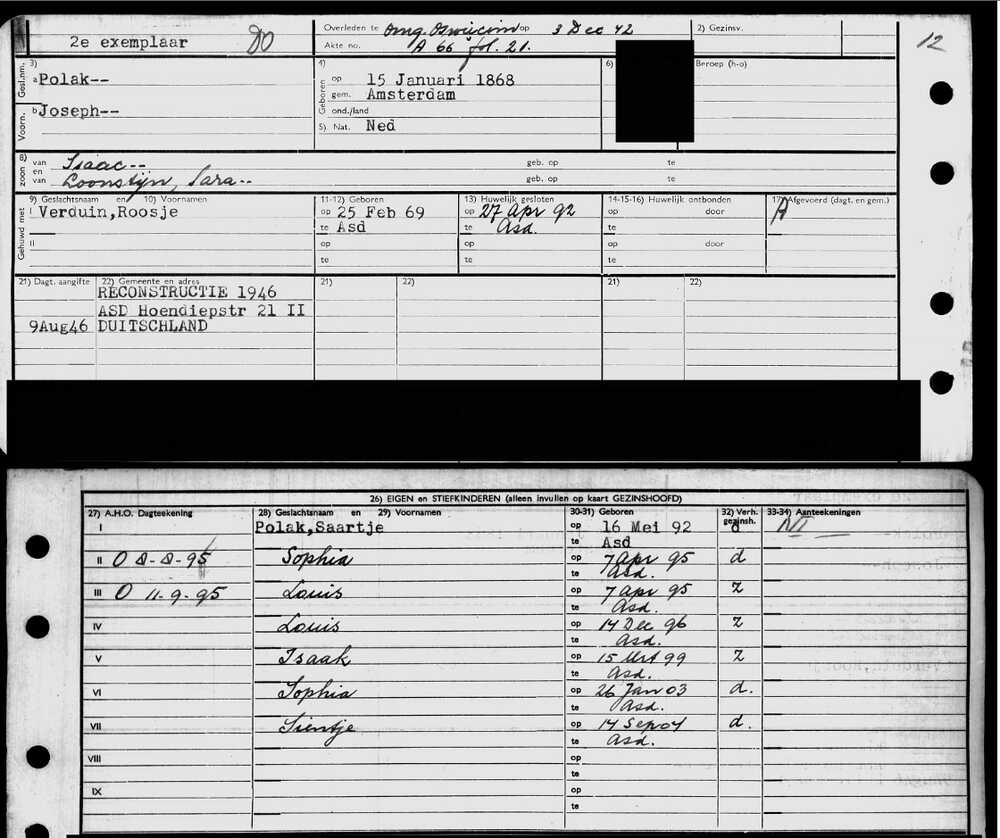 2e exemplaar DO
Overleden te omg. Oswiecim op 3 Dec 42
Akte no. A 66 fol. 21.
2) Gezinsv.
12
Gesl.nm. 3) a Polak--
Voorn. b Joseph--
4) Geboren op 15 Januari 1868
gem. Amsterdam
ond./land
5) Nat. Ned
6)
Beroep (h-o)
8) zoon van Isaac-- geb. op te
en van Loonstijn, Sara-- geb. op te
Gehuwd met
9) Geslachtsnaam en 10) Voornamen
I Verduin,Roosje
II
11-12) Geboren
op 25 Feb 69
te Asd
op
te
13) Huwelijk gesloten
op 27 Apr 92
te Asd.
op
te
14-15-16) Huwelijk ontbonden
op door
te
op door
te
17) Afgevoerd (dagt. en gem.)
A
21) Dagt. aangifte 22) Gemeente en adres 21) 22) 21) 22)
RECONSTRUCTIE 1946
ASD Hoendiepstr 21 II
9Aug46 DUITSCHLAND
26) EIGEN en STIEFKINDEREN (alleen invullen op kaart GEZINSHOOFD)
27) A.H.O. Dagteekening 28) Geslachtsnaam en 29) Voornamen 30-31) Geboren 32) Verh. gezinsh. 33-34) Aanteekeningen
I Polak,Saartje op 16 Mei 92 d NI
te Asd
II O 8-8-95 Sophia op 7 Apr 95 d
te Asd.
III O 11-9-95 Louis op 7 Apr 95 Z
te Asd.
IV Louis op 14 Dec 96 Z
te Asd.
V Isaak op 15 Mrt 99 Z
te Asd.
VI Sophia op 26 Jan 03 d.
te Asd.
VII Sientje op 14 Sep 04 d.
te Asd.
VIII op
te
IX op
te